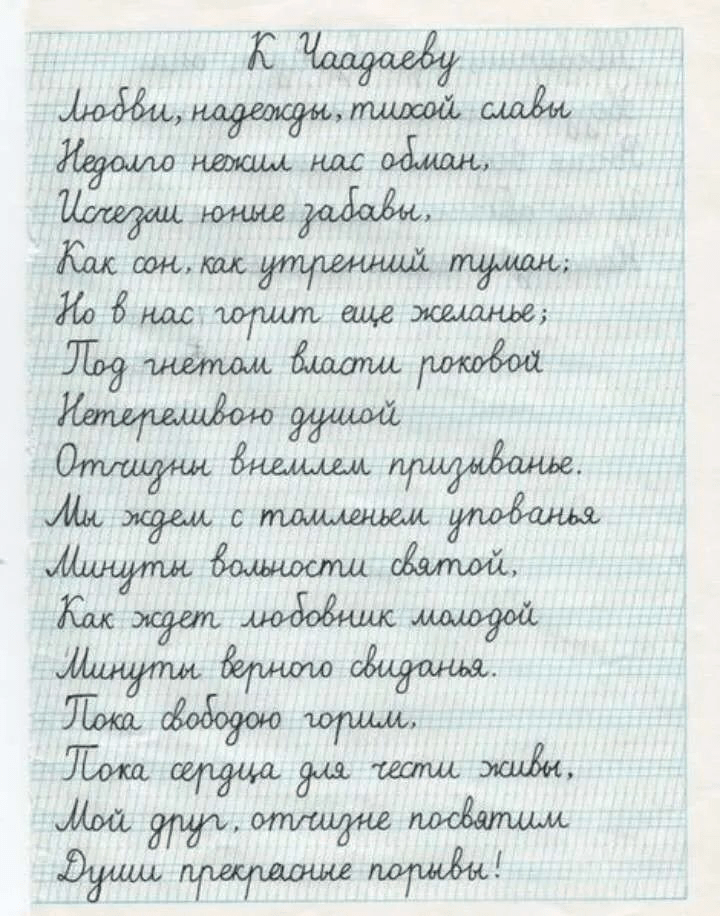 К Чаадаеву
Любви, надежды, тихой славы
Недолго нежил нас обман,
Исчезли юные забавы,
Как сон, как утренний туман;
Но в нас горит еще желанье;
Под гнетом власти роковой
Нетереливою душой
Отчизны внемлем призыванье.
Мы ждем с томленьем упованья
Минуты вольности святой,
Как ждет любовник молодой
Минуты верного свиданья.
Пока свободою горим,
Пока сердца для чести живы,
Мой друг, отчизне посвятим
Души прекрасные порывы!